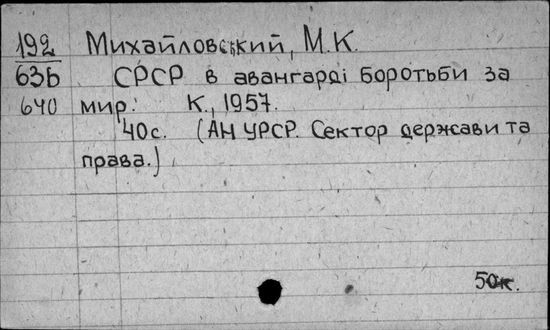 192 Михайловський, М.К.
63Б СРСР в авангарді боротьби за
640 мир. К., 1957.
40с. (АН УРСР. Сектор держави та
права.)
50к.